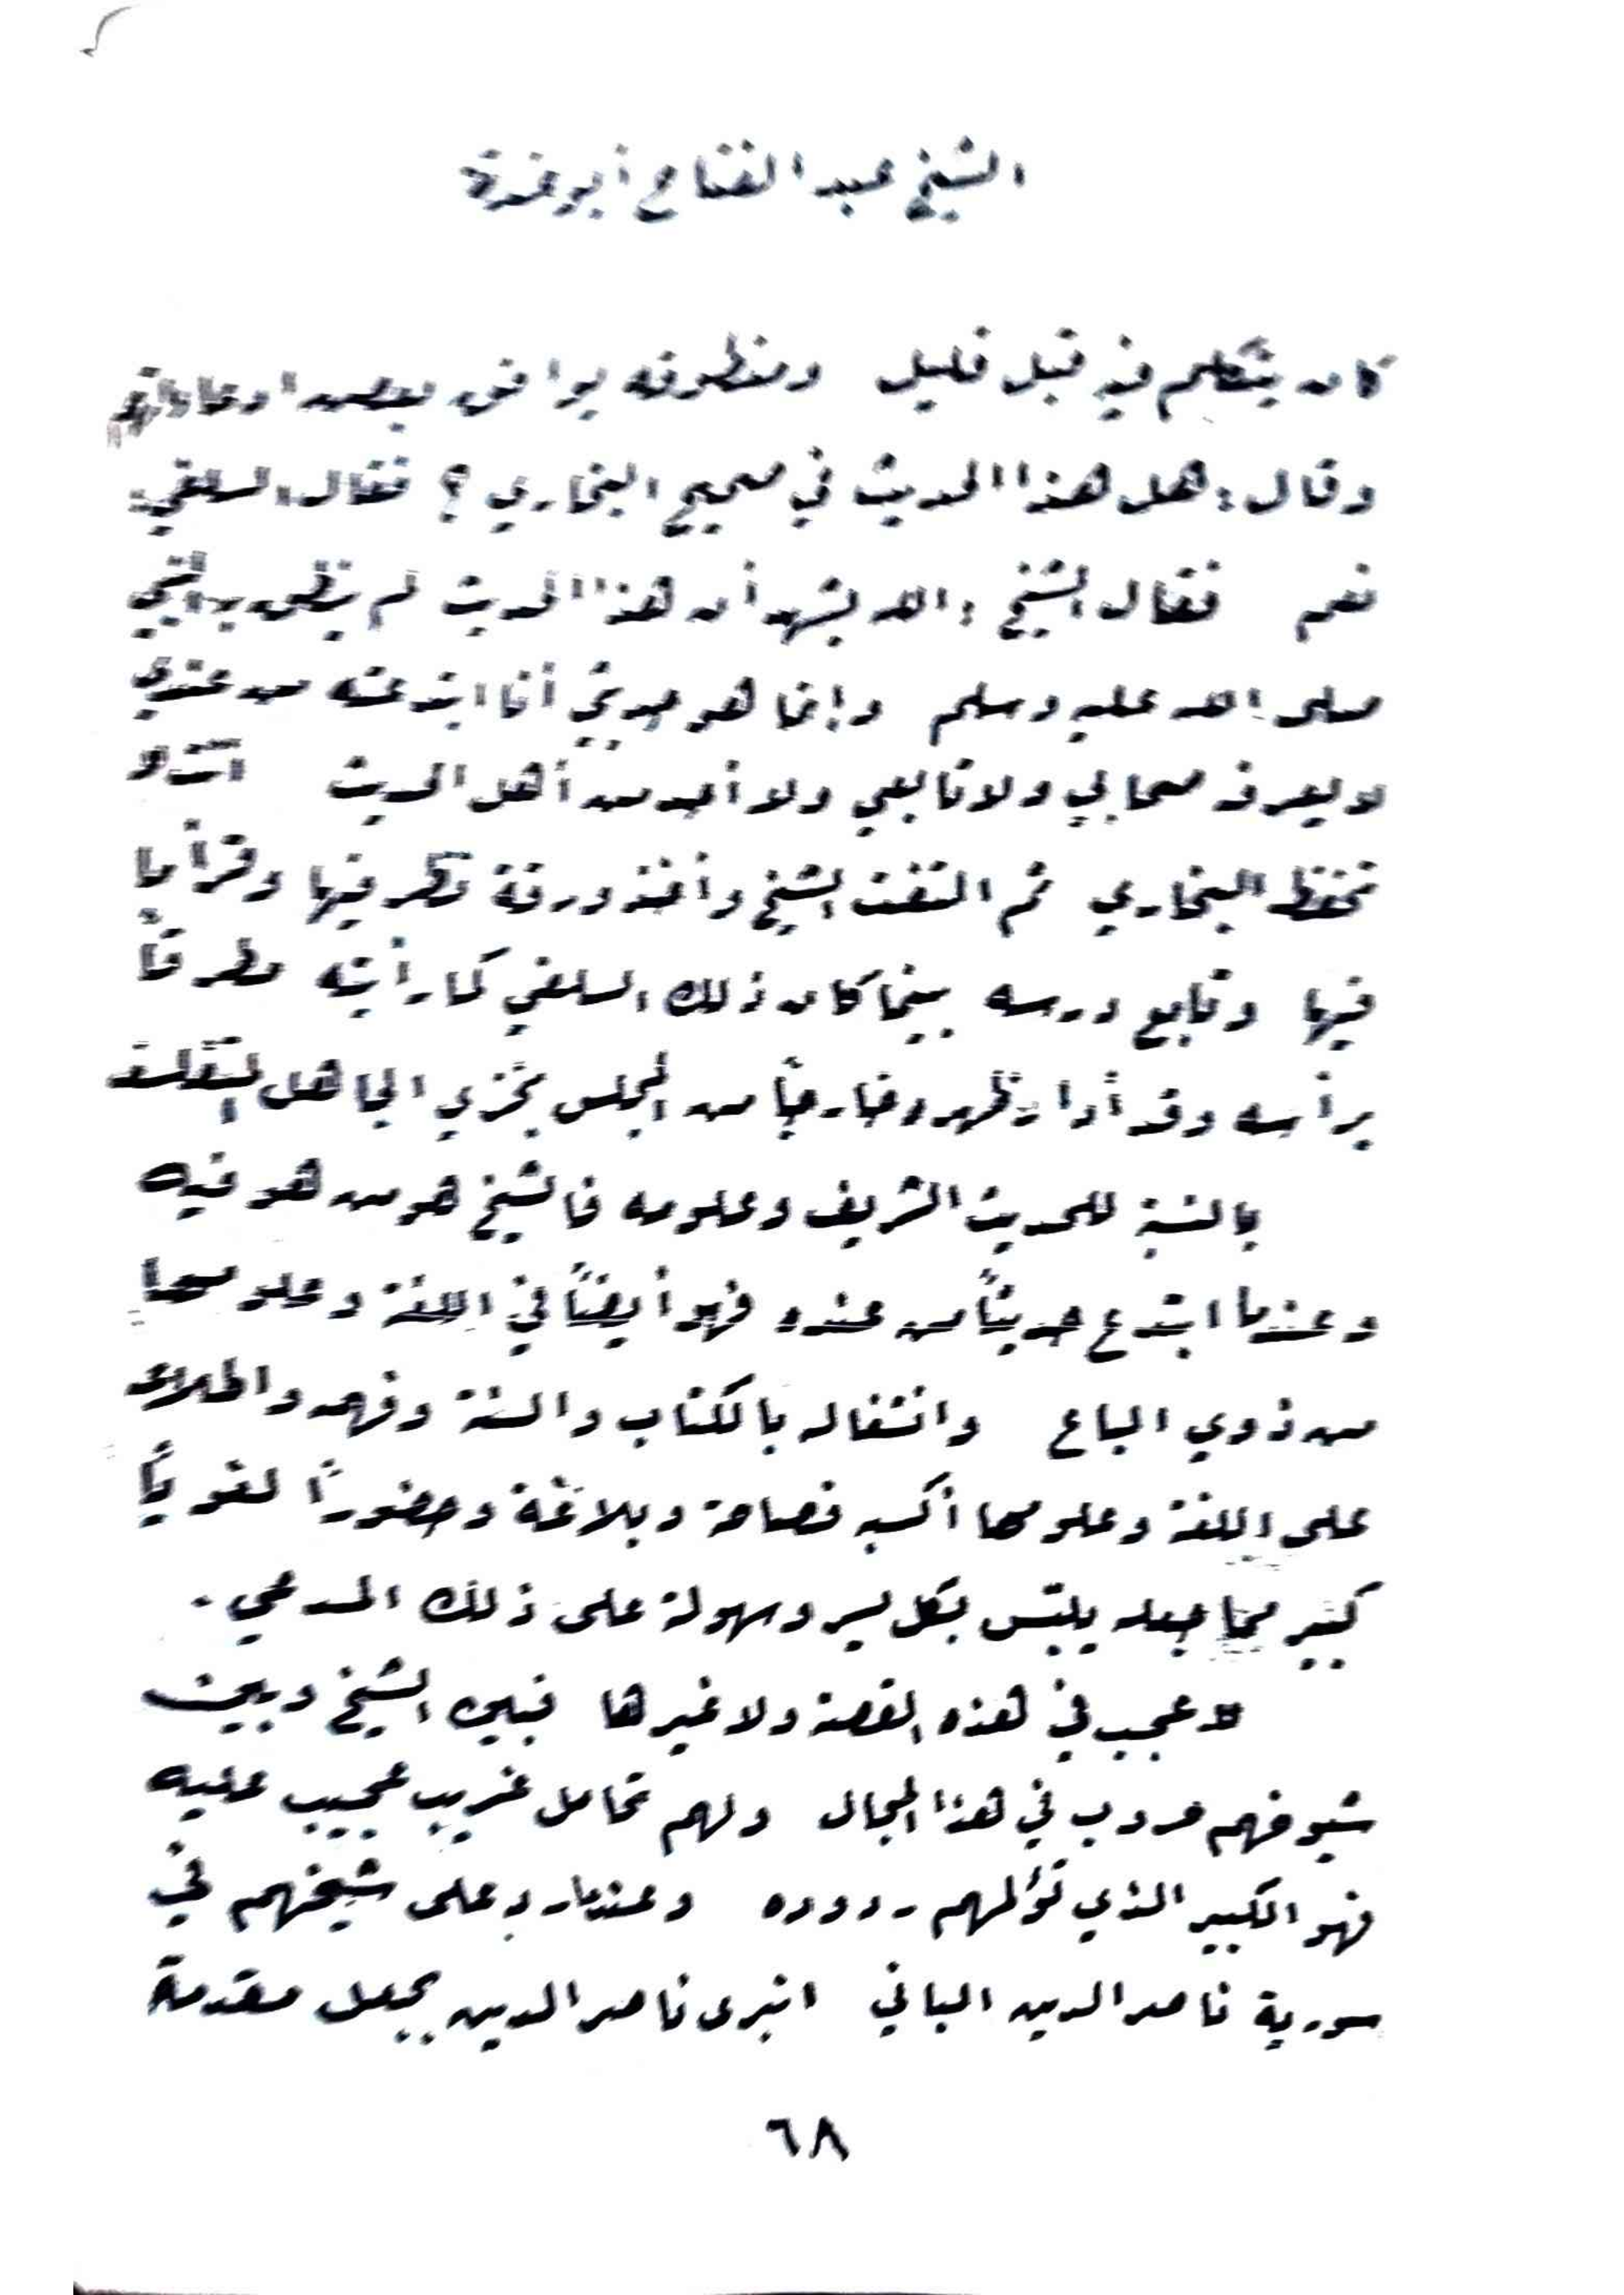 الشيخ عبد الفتاح أبو غدة
كان يتكلم فيه قبل قليل ومنطوقه يوافق بعض ادعاءاتهم
وقال: هل هذا الحديث في صحيح البخاري؟ فقال السلفي:
نعم فقال الشيخ: الله يشهد أن هذا الحديث لم ينطق به النبي
صلى الله عليه وسلم وإنما هو حديثي أنا ابتدعته من عندي
لا يعرفه صحابي ولا تابعي ولا أحد من أهل الحديث أنت لا
تحفظ البخاري ثم التفت الشيخ وأخذ ورقة نظر فيها وقرأ ما
فيها وتابع درسه بينما كان ذلك السلفي كما رأيته مطرقاً
برأسه وقد أدار ظهره خارجاً من المجلس بخزي الجاهل
بالنسبة للحديث الشريف وعلومه فالشيخ هو من هو فيه
وعندما ابتدع حديثاً من عنده فهو أيضاً في اللغة وعلومها
من ذوي الباع وانشغاله بالكتاب والسنة وفهمه واطلاعه
على اللغة وعلومها أكسبه فصاحة وبلاغة وحضوراً لغوياً
كبير مما جعله يلبّس بكل يسر وسهولة على ذلك المدعي.
لا عجب في هذه القصة ولا غيرها فبين الشيخ وبين
شيوخهم حروب في هذا المجال ولهم تحامل غريب عجيب عليه
فهو الكبير الذي تؤلمهم ردوده وعندما رد على شيخهم في
سورية ناصر الدين الباني انبرى ناصر الدين يجعل مقدمة
٦٨